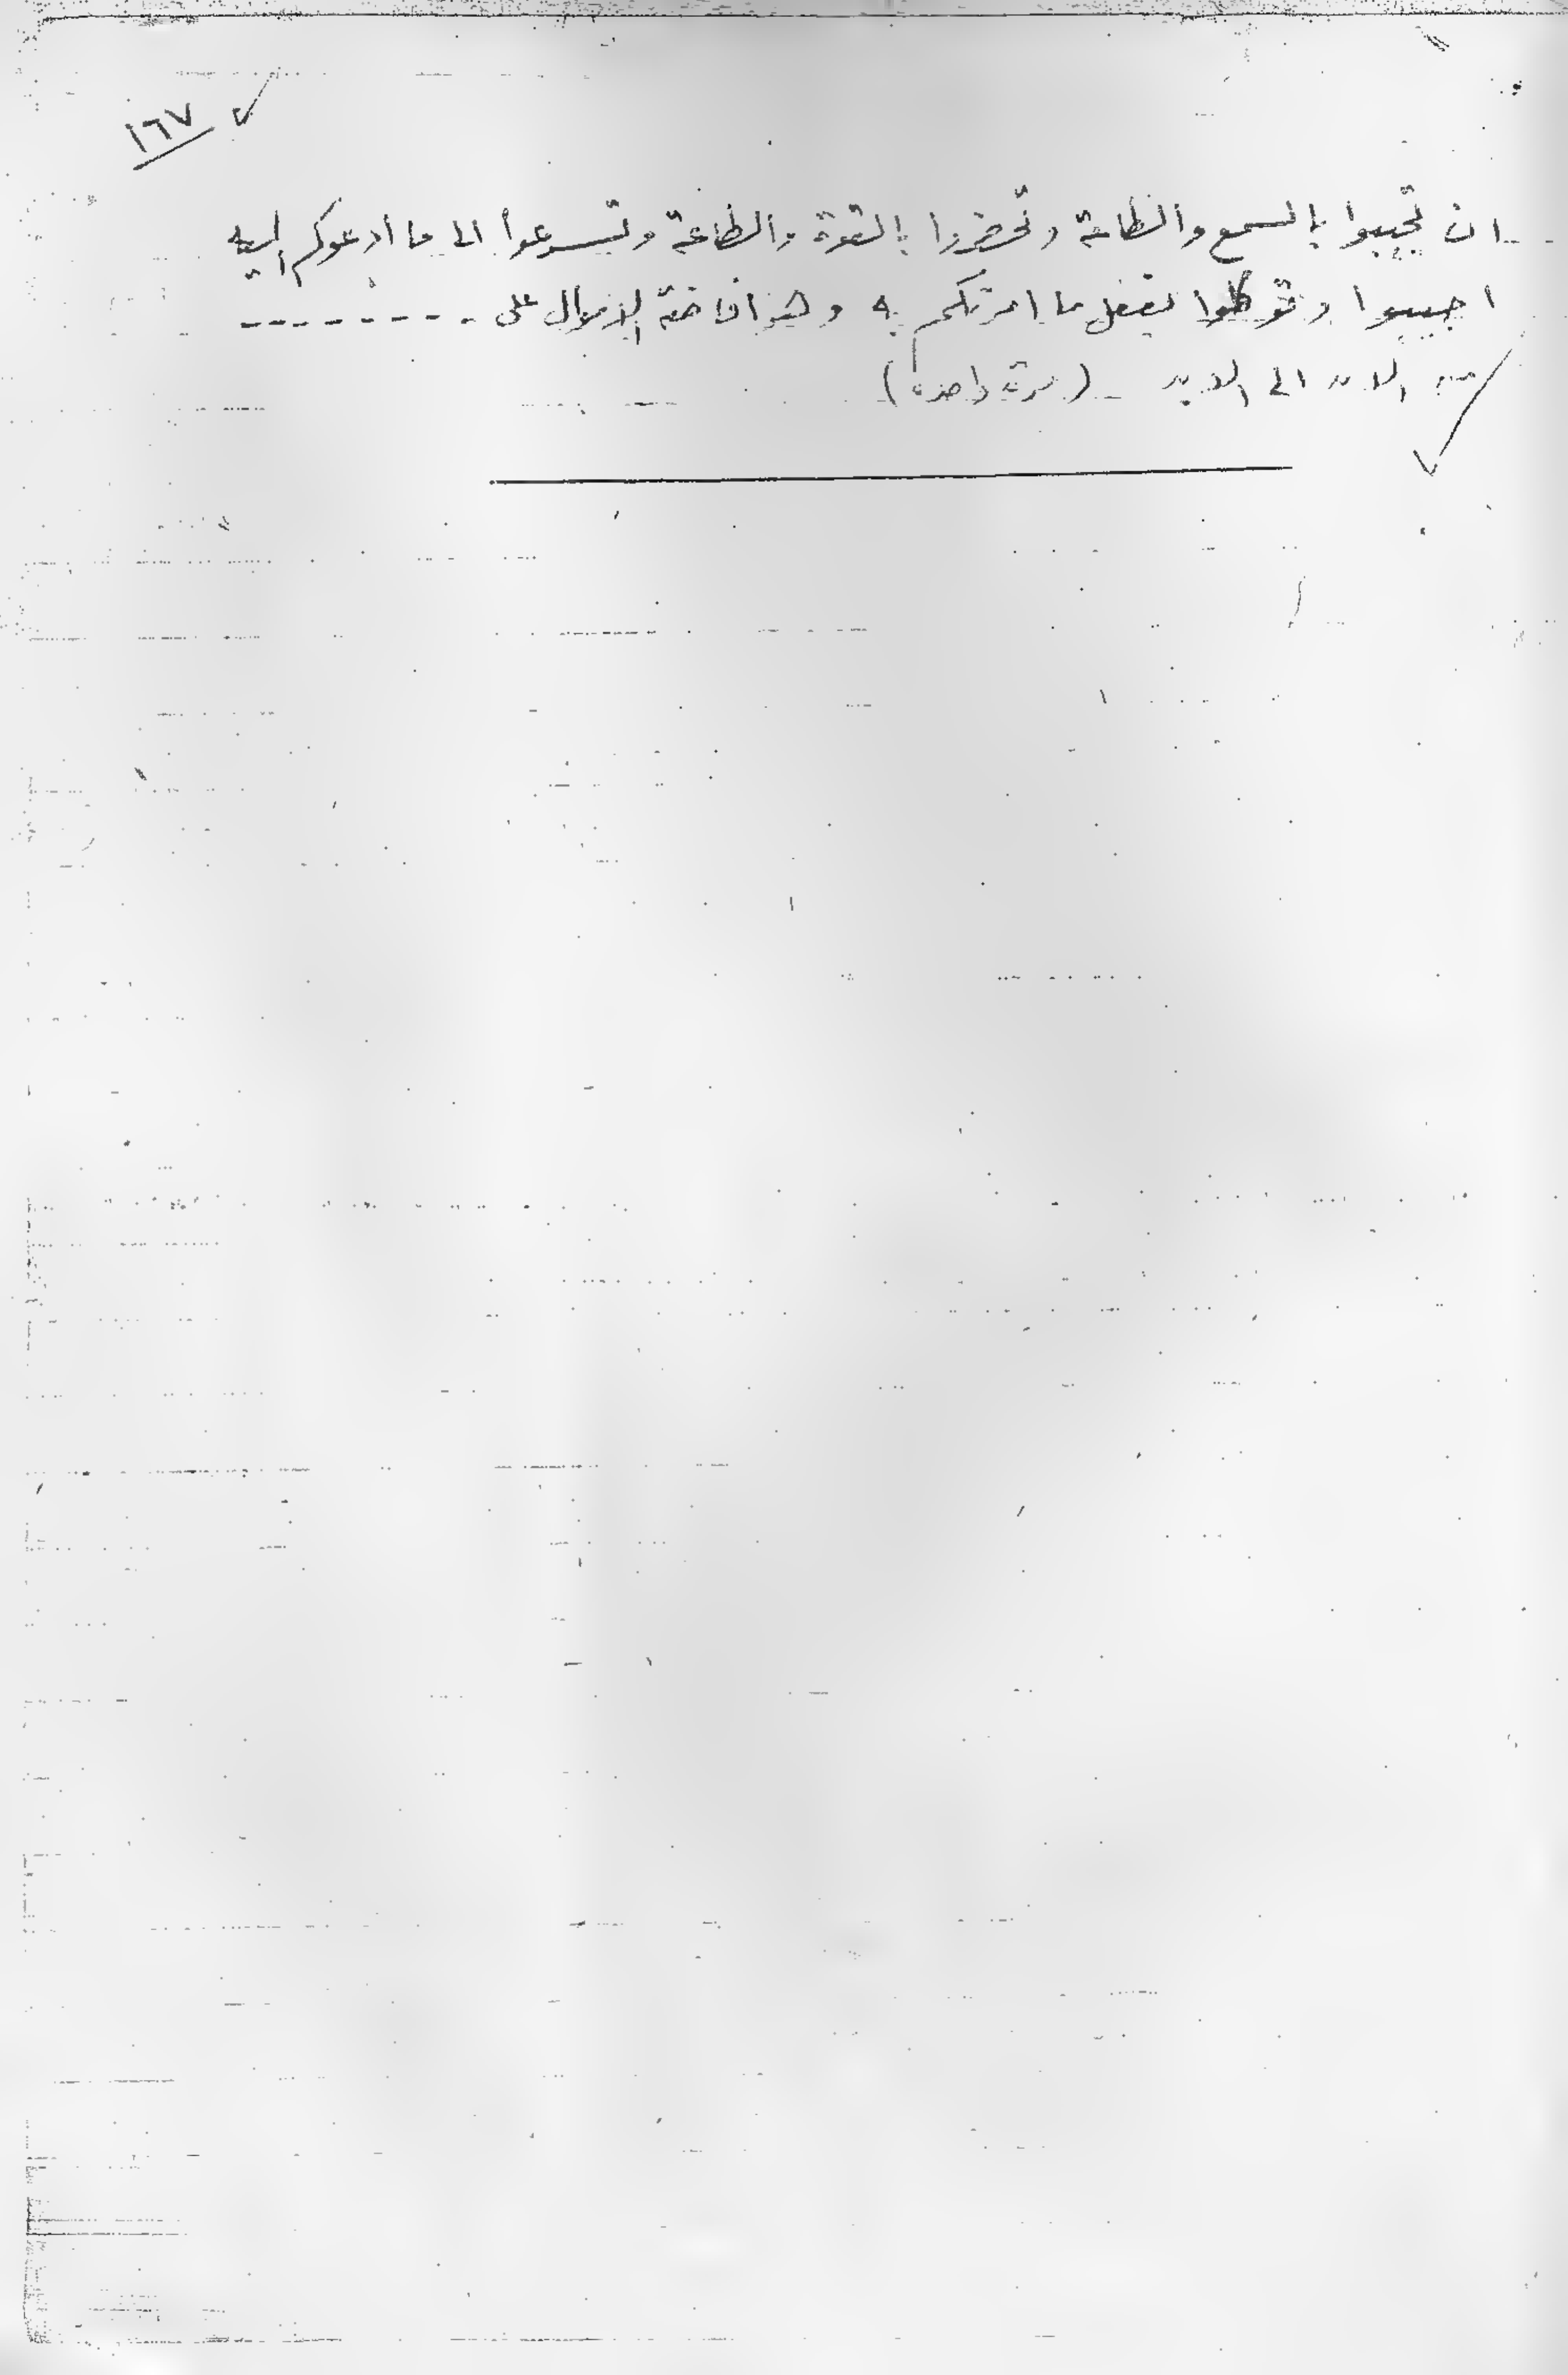 ١٦٧
ان تجيبوا بالسمع والطاعة وتحضروا بالقوة والطاعة وتسرعوا الى ما أدعوكم اليه
اجيبوا وتوكلوا بفعل ما امرتكم به و هو افاضة الاموال على - - - - - - - - -
الى (مرة واحدة)